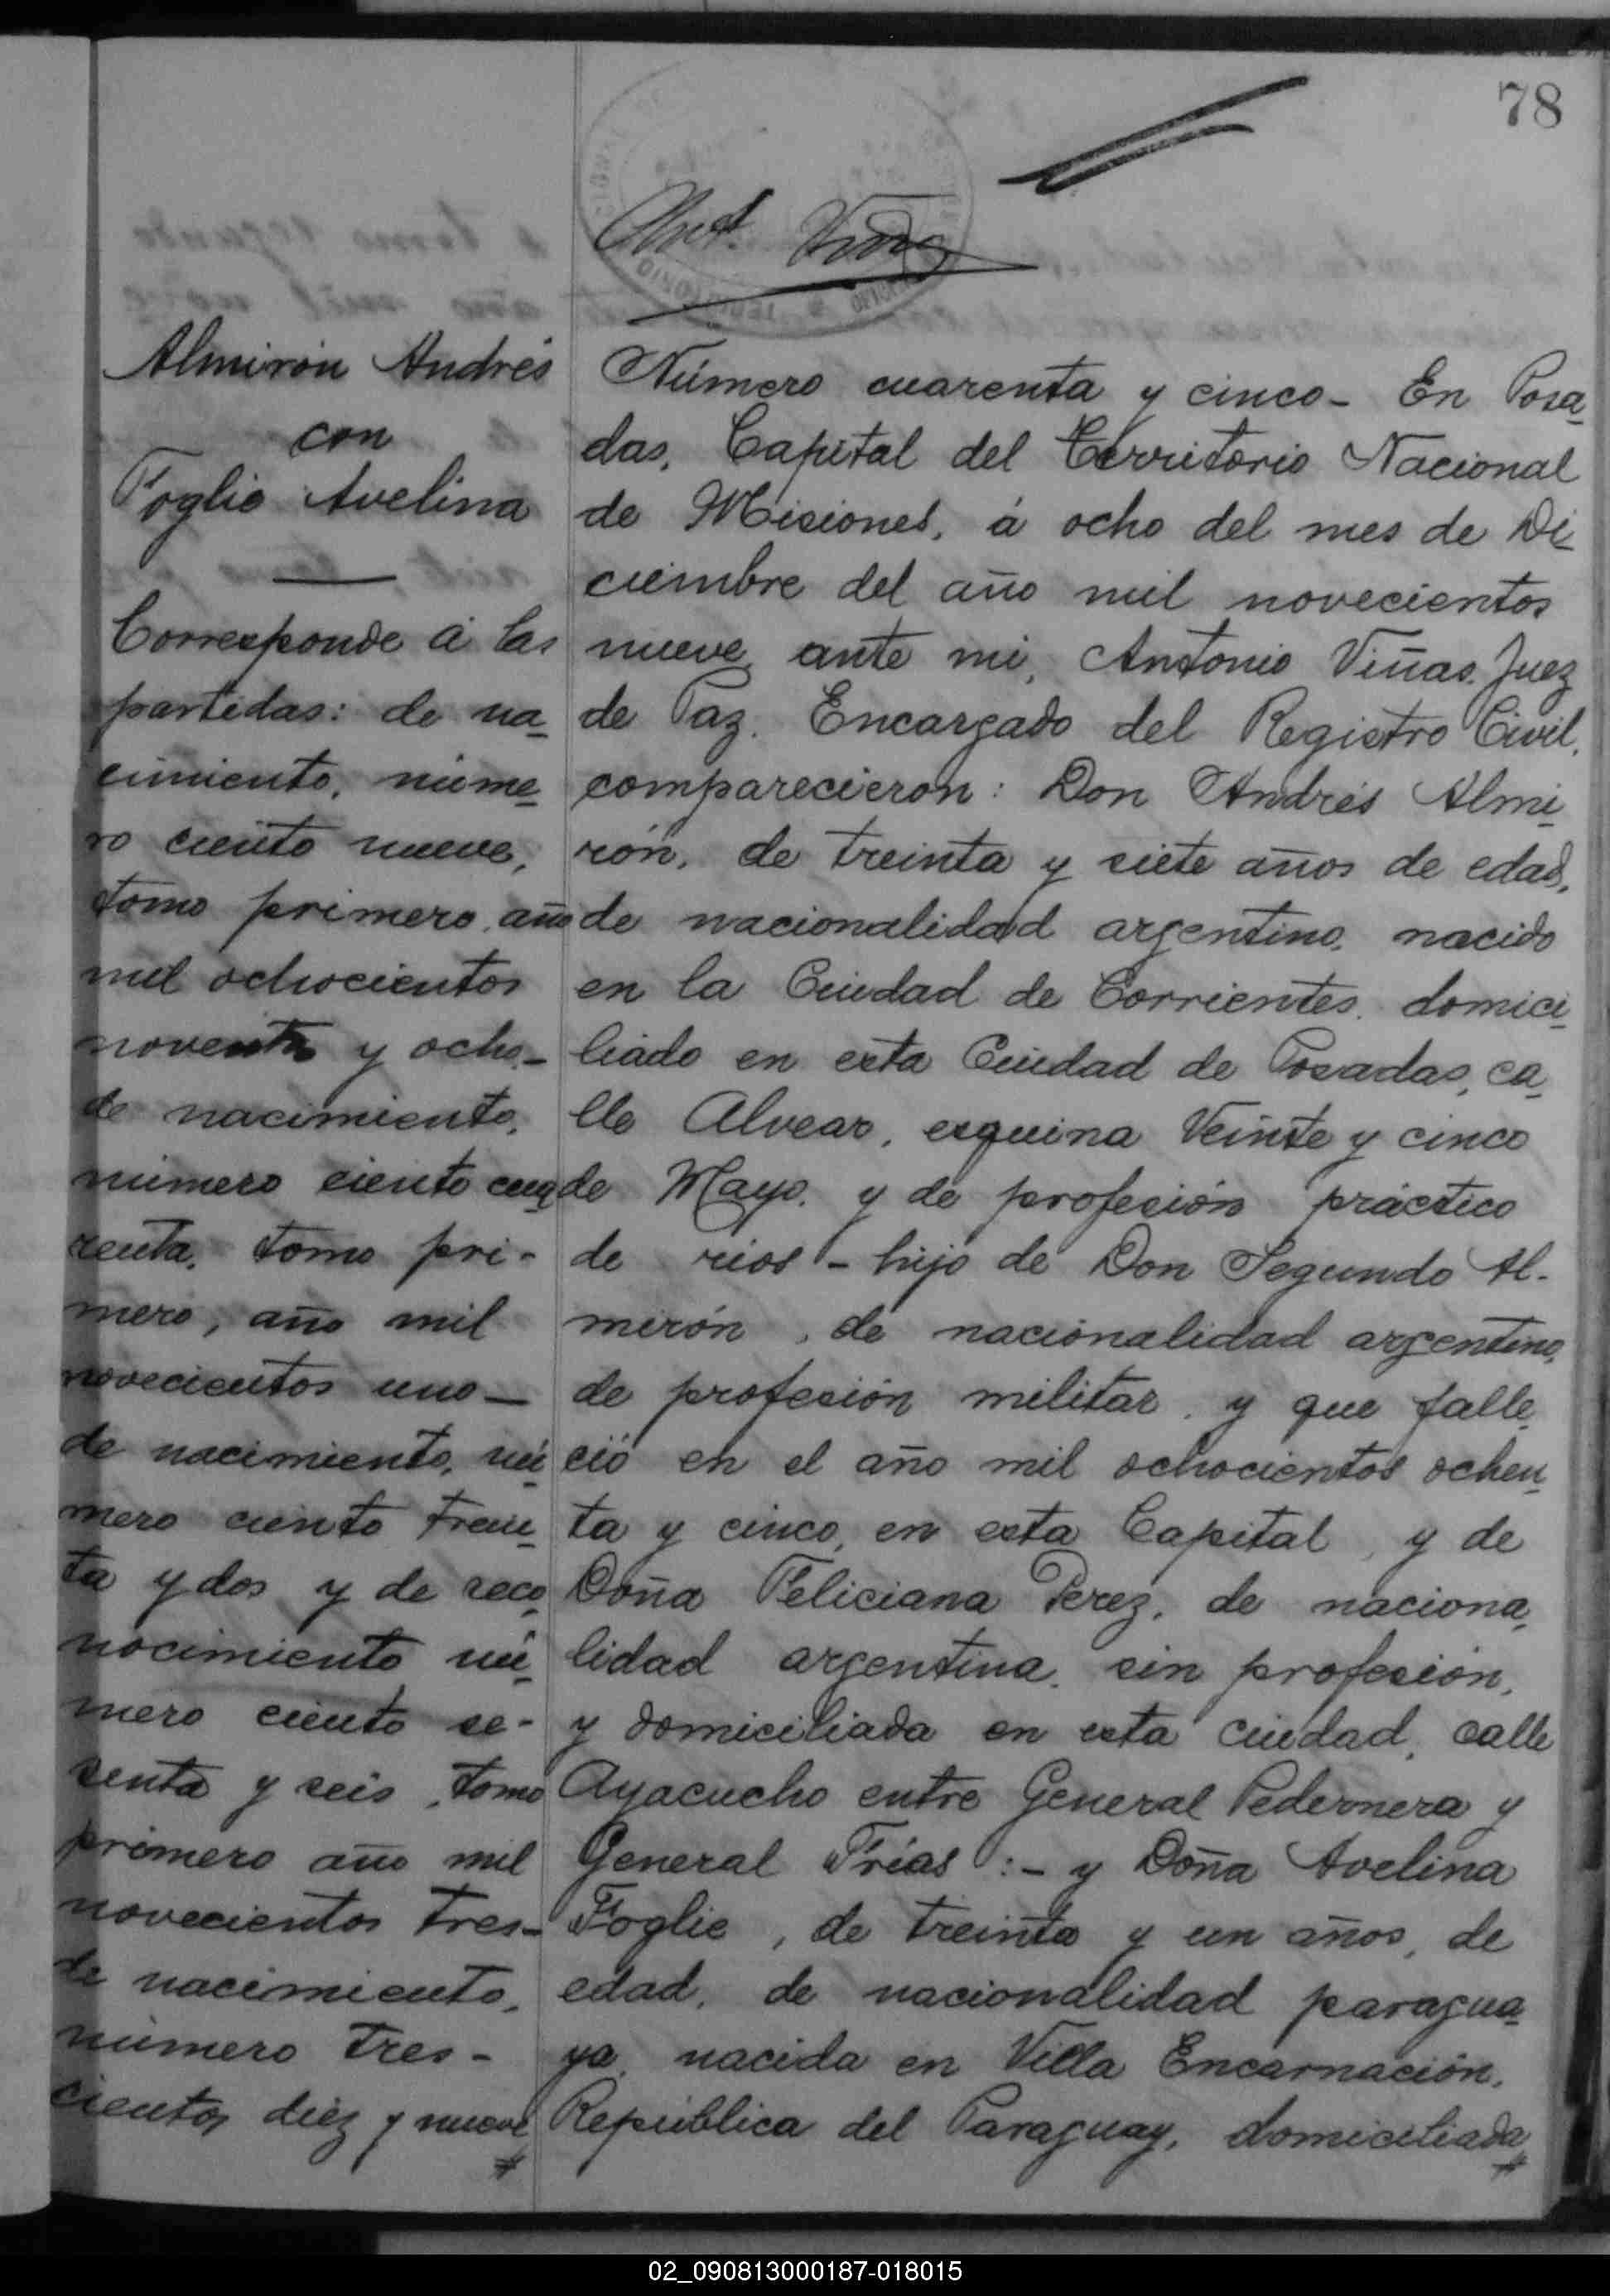 78
Ant. Viñas
Almirón Andrés
con
Foglie Avelina
Corresponde á las
partidas: de na_
cimiento, núme_
ro ciento nueve,
tomo primero, año
mil ochocientos
noventa y ocho_
de nacimiento,
número ciento cua_
renta, tomo pri-
mero, año mil
novecientos uno_
de nacimiento, nú_
mero ciento trein_
ta y dos y de reco_
nocimiento nú_
mero ciento se-
senta y seis, tomo
primero año mil
novecientos tres_
de nacimiento,
número tres-
cientos diez y nueve
#
Número cuarenta y cinco_ En Posa_
das, Capital del Territorio Nacional
de Misiones, á ocho del mes de Di_
ciembre del año mil novecientos
nueve, ante mi, Antonio Viñas, Juez
de Paz, Encargado del Registro Civil,
comparecieron: Don Andrés Almi_
rón, de treinta y siete años de edad,
de nacionalidad argentino, nacido
en la Ciudad de Corrientes, domici_
liado en esta Ciudad de Posadas, ca_
lle Alvear, esquina Veinte y cinco
de Mayo, y de profesión práctico
de rios - hijo de Don Segundo Al-
mirón, de nacionalidad argentino,
de profesión militar, y que falle_
ció en el año mil ochocientos ochen_
ta y cinco, en esta Capital, y de
Doña Feliciana Perez, de naciona_
lidad argentina, sin profesión,
y domiciliada en esta ciudad, calle
Ayacucho entre General Pedernera y
General Frías :- y Doña Avelina
Foglie, de treinta y un años, de
edad, de nacionalidad paragua_
ya, nacida en Villa Encarnación,
República del Paraguay, domiciliada
#
02_090813000187-018015